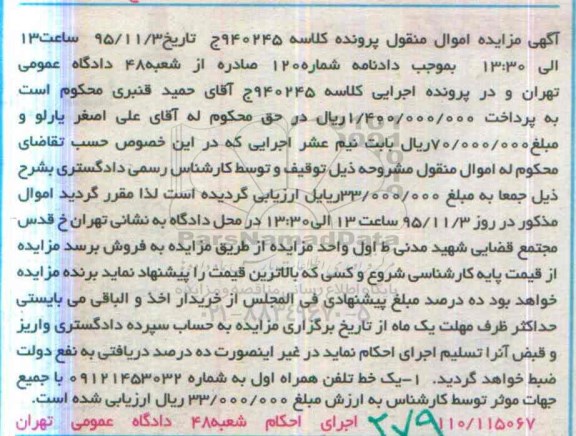 آگهی مزایده اموال منقول پرونده کلاسه ۹۴۰۲۴۵ج تاریخ۹۵/۱۱/۳ ساعت۱۳
الی ۱۳:۳۰ بموجب دادنامه شماره۱۲۰ صادره از شعبه۴۸ دادگاه عمومی
تهران و در پرونده اجرایی کلاسه ۹۴۰۲۴۵ج آقای حمید قنبری محکوم است
به پرداخت ۱/۴۰۰/۰۰۰/۰۰۰ریال در حق محکوم له آقای علی اصغر یارلو و
مبلغ۷۰/۰۰۰/۰۰۰ریال بابت نیم عشر اجرایی که در این خصوص حسب تقاضای
محکوم له اموال منقول مشروحه ذیل توقیف و توسط کارشناس رسمی دادگستری بشرح
ذیل جمعا به مبلغ ۳۳/۰۰۰/۰۰۰ریایل ارزیابی گردیده است لذا مقرر گردید اموال
مذکور در روز ۹۵/۱۱/۳ ساعت ۱۳ الی۱۳:۳۰ در محل دادگاه به نشانی تهران خ قدس
مجتمع قضایی شهید مدنی ط اول واحد مزایده از طریق مزایده به فروش برسد مزایده
از قیمت پایه کارشناسی شروع و کسی که بالاترین قیمت را پیشنهاد نماید برنده مزایده
خواهد بود ده درصد مبلغ پیشنهادی فی المجلس از خریدار اخذ و الباقی می بایستی
حداکثر ظرف مهلت یک ماه از تاریخ برگزاری مزایده به حساب سپرده دادگستری واریز
و قبض آنرا تسلیم اجرای احکام نماید در غیر اینصورت ده درصد دریافتی به نفع دولت
ضبط خواهد گردید. ۱-یک خط تلفن همراه اول به شماره ۰۹۱۲۱۴۵۳۰۳۲ با جمیع
جهات موثر توسط کارشناس به ارزش مبلغ ۳۳/۰۰۰/۰۰۰ ریال ارزیابی شده است.
۱۱۰/۱۱۵۰۶۷ اجرای احکام شعبه۴۸ دادگاه عمومی تهران
۲۷۹
ParsNamadData
پایگاه اطلاع رسانی مناقصه و مزایده
۰۲۱-۸۸۳۴۹۶۷۰-۵